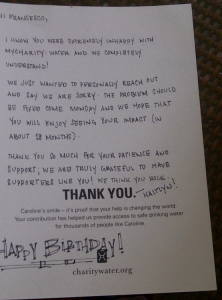 HI FRANCESCO,
I KNOW YOU WERE EXTREMELY UNHAPPY WITH
MYCHARITY: WATER AND WE COMPLETELY
UNDERSTAND!
WE JUST WANTED TO PERSONALLY REACH OUT
AND SAY WE ARE SORRY. THE PROBLEM SHOULD
BE FIXED COME MONDAY AND WE HOPE THAT
YOU WILL ENJOY SEEING YOUR IMPACT (IN
ABOUT 18 MONTHS).
THANK YOU SO MUCH FOR YOUR PATIENCE AND
SUPPORT; WE ARE TRULY GRATEFUL TO HAVE
SUPPORTERS LIKE YOU! WE THINK YOU ROCK.
KAITLYN!
THANK YOU.
Caroline's smile – it's proof that your help is changing the world.
Your contribution has helped us provide access to safe drinking water
for thousands of people like Caroline.
HAPPY BIRTHDAY!
charitywater.org